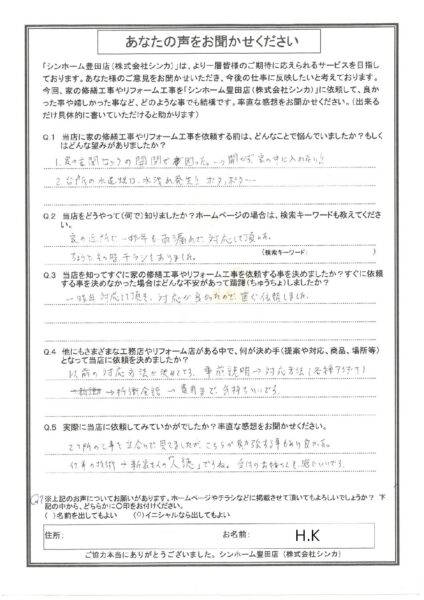 あなたの声をお聞かせください
「シンホーム豊田店（株式会社シンカ）」は、より一層皆様のご期待に応えられるサービスを目指し
ております。あなた様のご意見をお聞かせいただき、今後の仕事に反映したいと考えております。
今回、家の修繕工事やリフォーム工事を「シンホーム豊田店（株式会社シンカ）」に依頼して、良かっ
た事や嬉しかった事など、どのような事でも結構です。率直な感想をお聞かせください。（出来る
だけ具体的に書いていただけると助かります）
Q.1 当店に家の修繕工事やリフォーム工事を依頼する前は、どんなことで悩んでいましたか？もしく
はどんな望みがありましたか？
1. 家の玄関ロックの開閉で困った。→開かず家の中に入れない!
2. 台所の水道栓は、水洩れ発生!
Q.2 当店をどうやって（何で）知りましたか？ホームページの場合は、検索キーワードも教えてくだ
さい。
家の近所で 雨漏れで、対応して頂いた。
チラシもありました。
（検索キーワード： ）
Q.3 当店を知ってすぐに家の修繕工事やリフォーム工事を依頼する事を決めましたか？すぐに依頼
する事を決めなかった場合はどんな不安があって躊躇（ちゅうちょ）しましたか？
対応して頂き、対応が良かったので、直ぐ依頼しました。
Q.4 他にもさまざまな工務店やリフォーム店がある中で、何が決め手（提案や対応、商品、場所等）
となって当店を依頼を決めましたか？
以前の対応方法が決めてです。事前説明→対応方法（各種アイデア）
→費用まで、気持ちいいです。
Q.5 実際に当店に依頼してみていかがでしたか？率直な感想をお聞かせください。
仕事の技術→ 「人徳」ですね。
※上記のお声についてお願いがあります。ホームページやチラシなどに掲載させて頂いてもよろしいでしょうか？ 下
記の中から、どちらかに○印をお付けください。
（ ）名前を出してもよい （○）イニシャルなら出してもよい
住所： お名前： H.K
ご協力本当にありがとうございました。シンホーム豊田店 （株式会社シンカ）